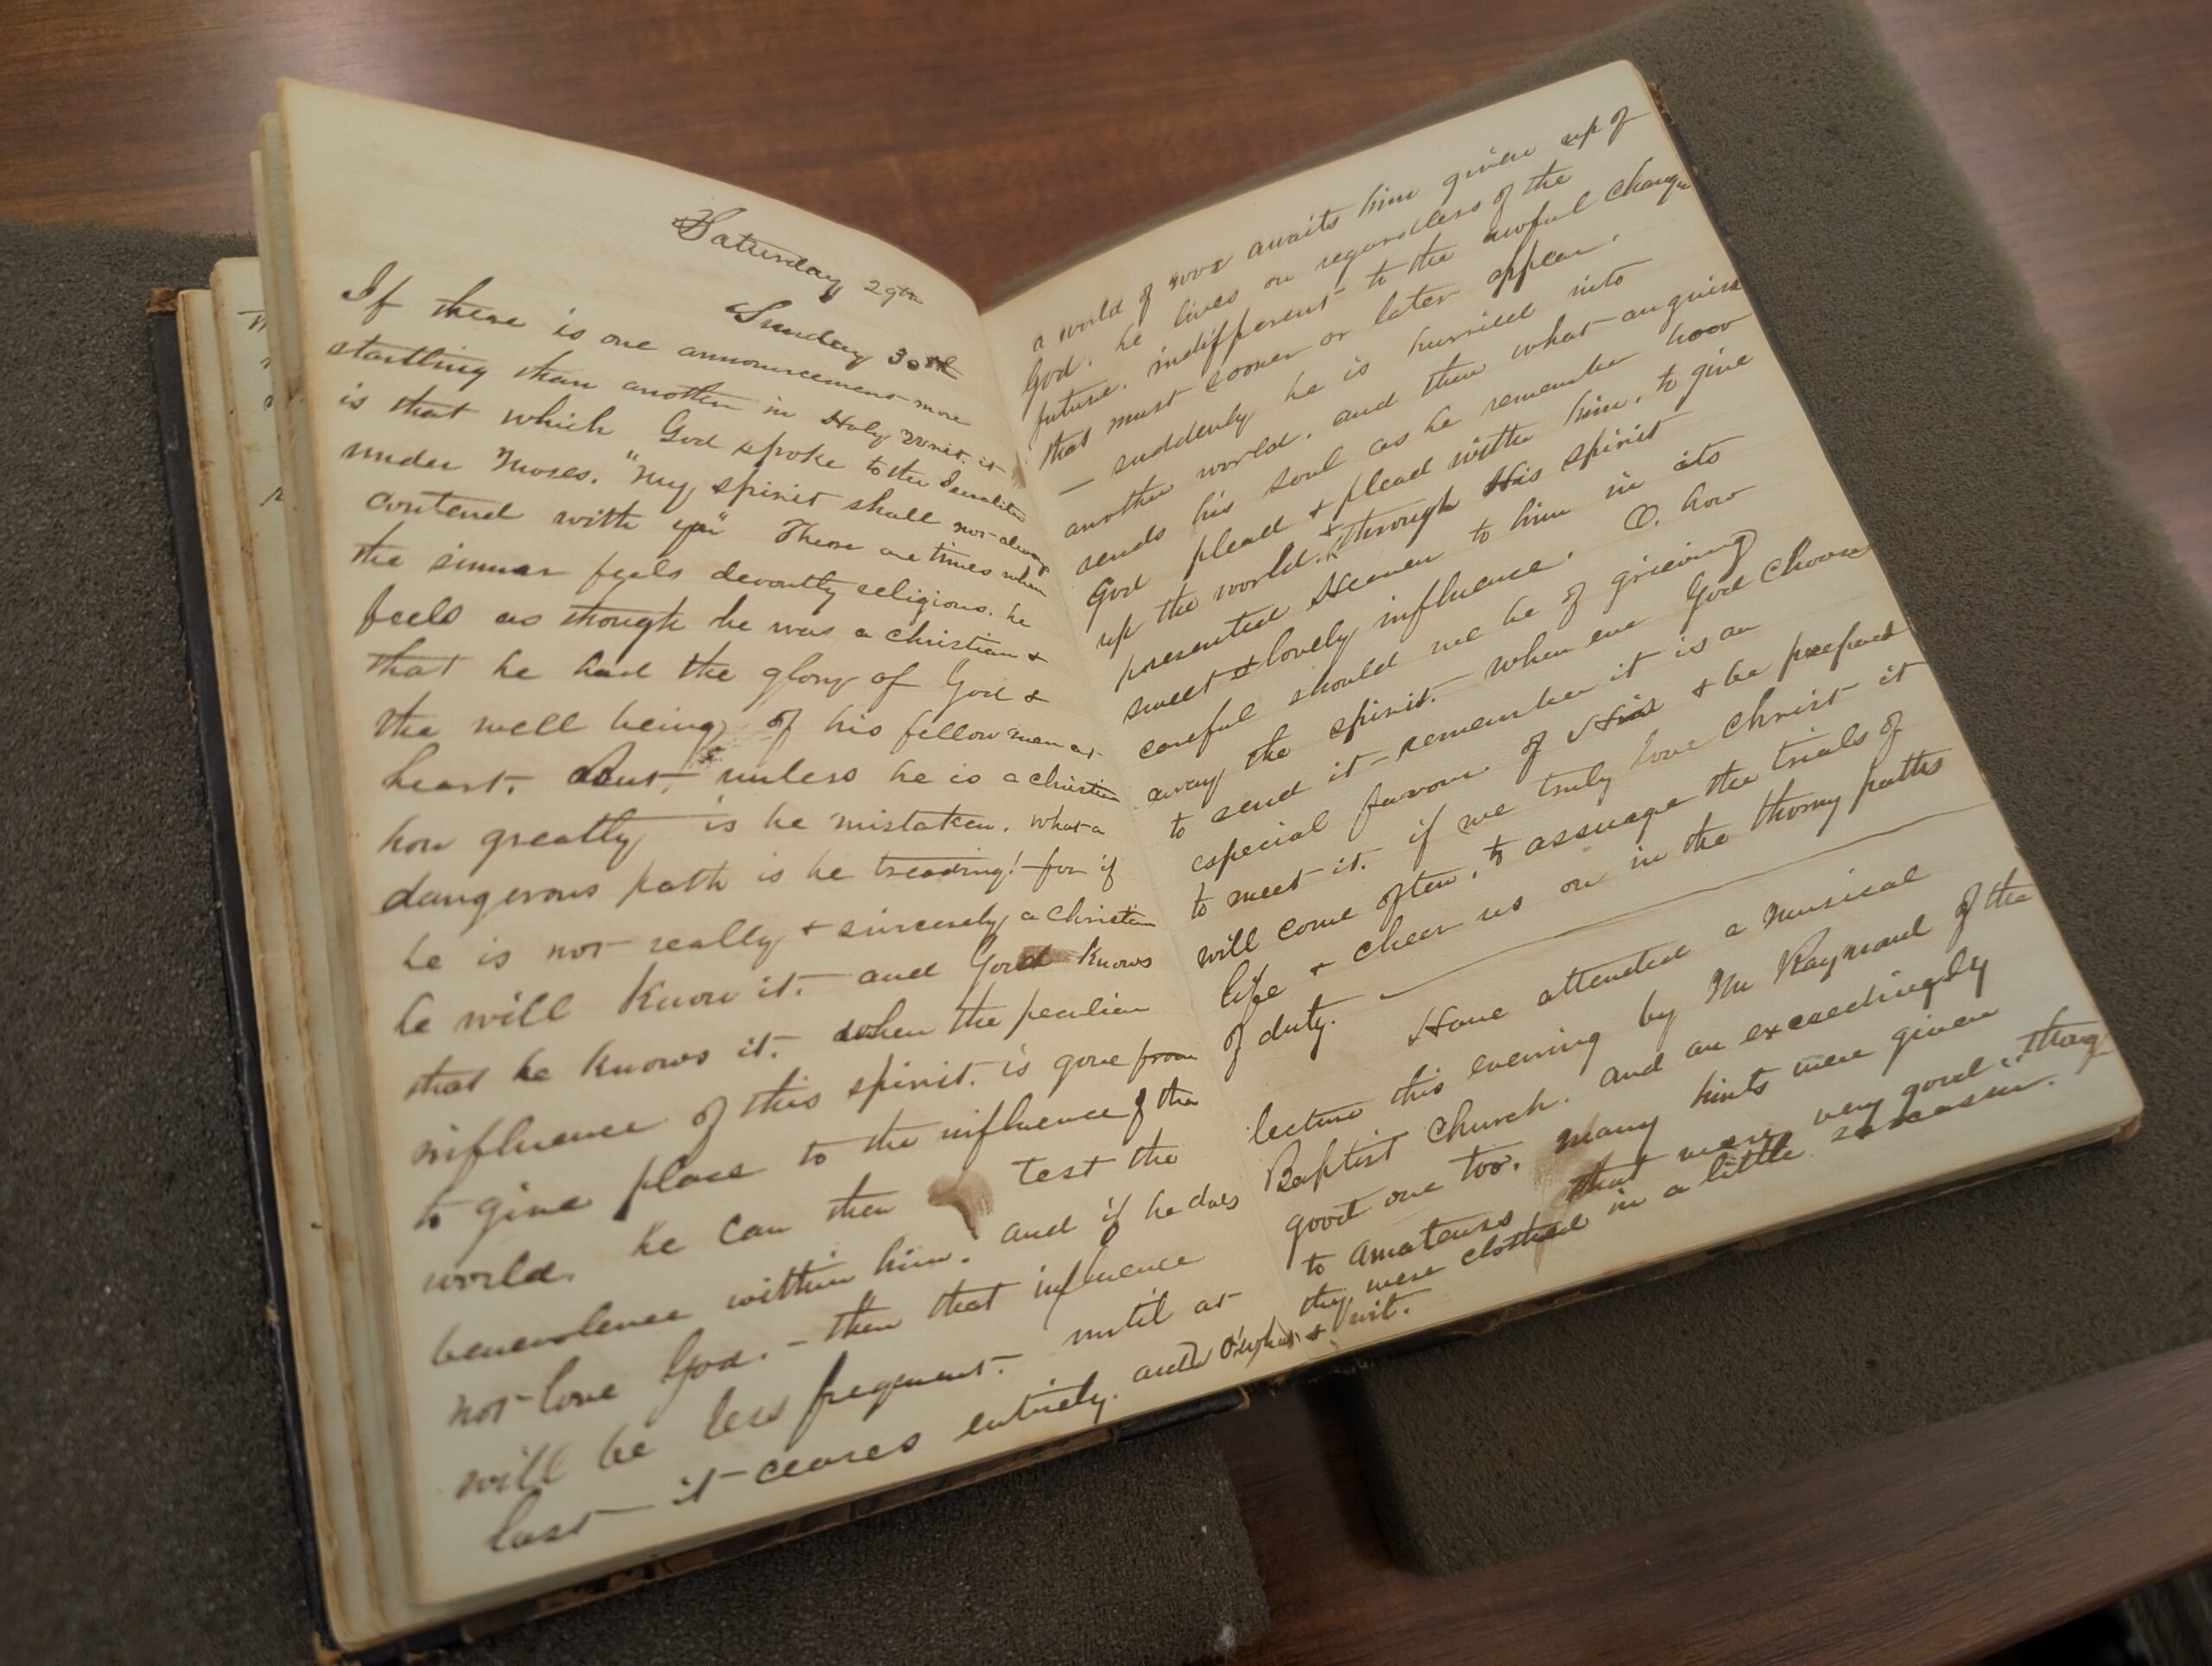 Saturday 29th
Sunday 30th
If there is one announcement more
startling than another in Holy Writ. it
is that which God spoke to the Israelites
under Moses. "My spirit shall not always
contend with you" There are times when
the sinner feels devoutly religious. he
feels as though he was a christian &
that he had the glory of God &
the well being of his fellow men at
heart. But, unless he is a christian
how greatly is he mistaken. what a
dangerous path is he treading! for if
he is not really & sincerely a christian
he will know it. and God knows
that he knows it. when the peculiar
influence of this spirit. is gone from
to give place to the influence of the
world. he can then test the
benevolence within him. and if he does
not love God. – then that influence
will be less frequent. until at
last it ceases entirely. and O! what
a world of woe awaits him given up of
God. he lives on regardless of the
future. indifferent to the awful change
that must sooner or later appear.
— suddenly he is hurried into
another world. and then what anguish
sends his soul as he remember how
God plead & plead with him, to give
up the world. & through His spirit
presented Heaven to him in its
sweet & lovely influence. O. how
careful should we be of grieving
away the spirit. – when ever God choose
to send it – remember it is an
especial favour of His & be prepared
to meet it. if we truly love Christ it
will come often, to assuage the trials of
life & cheer us on in the thorny paths
of duty.
Have attended a Musical
lecture this evening by Mr Raymond of the
Baptist Church. and an exceedingly
good one too. Many hints were given
to amateurs that were very good. thoug
they were clothed in a little
& wit.